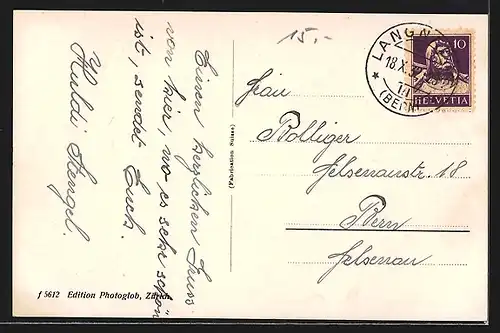 Einen herzlichen Gruss
von hier, wo es sehr schön
ist, sendet Euch
Huldi Stengel.
15.-
LANGN
18.X.3
(BERN
10
HELVETIA
Frau
Bolliger
Felsenaustr. 18
Bern
Felsenau
(Fabrication Suisse)
f 5612 Edition Photoglob, Zürich